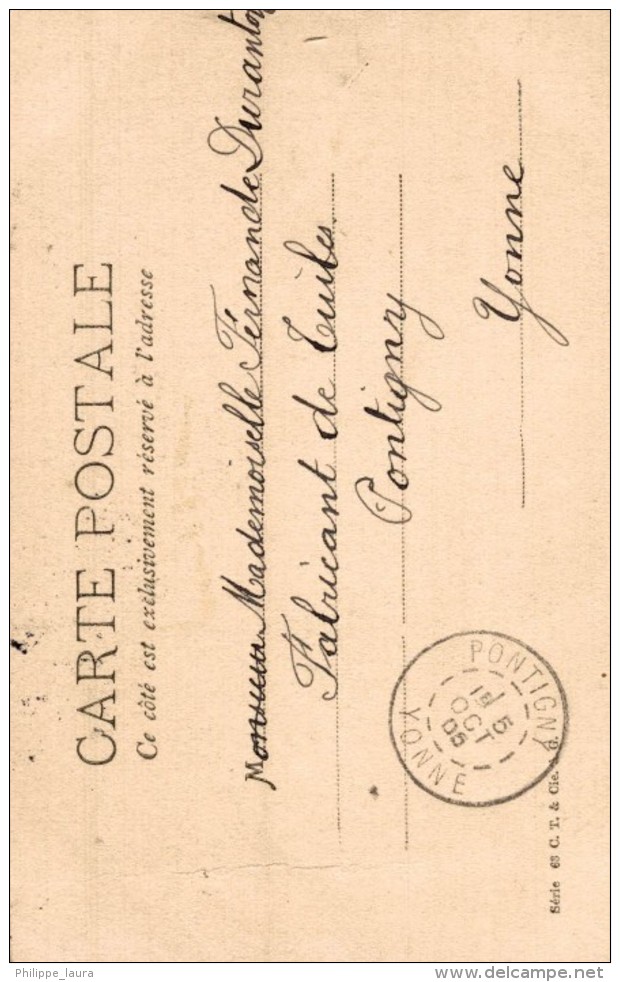 CARTE POSTALE
Ce côté est exclusivement réservé à l'adresse
Monsieur Mademoiselle Fernande Duranton
Fabricant de Tuiles.
Pontigny
Yonne
PONTIGNY
15
OCT
05
YONNE
Série 63 C. T. & Cie. G.
Philippe_laura
delcampe.net